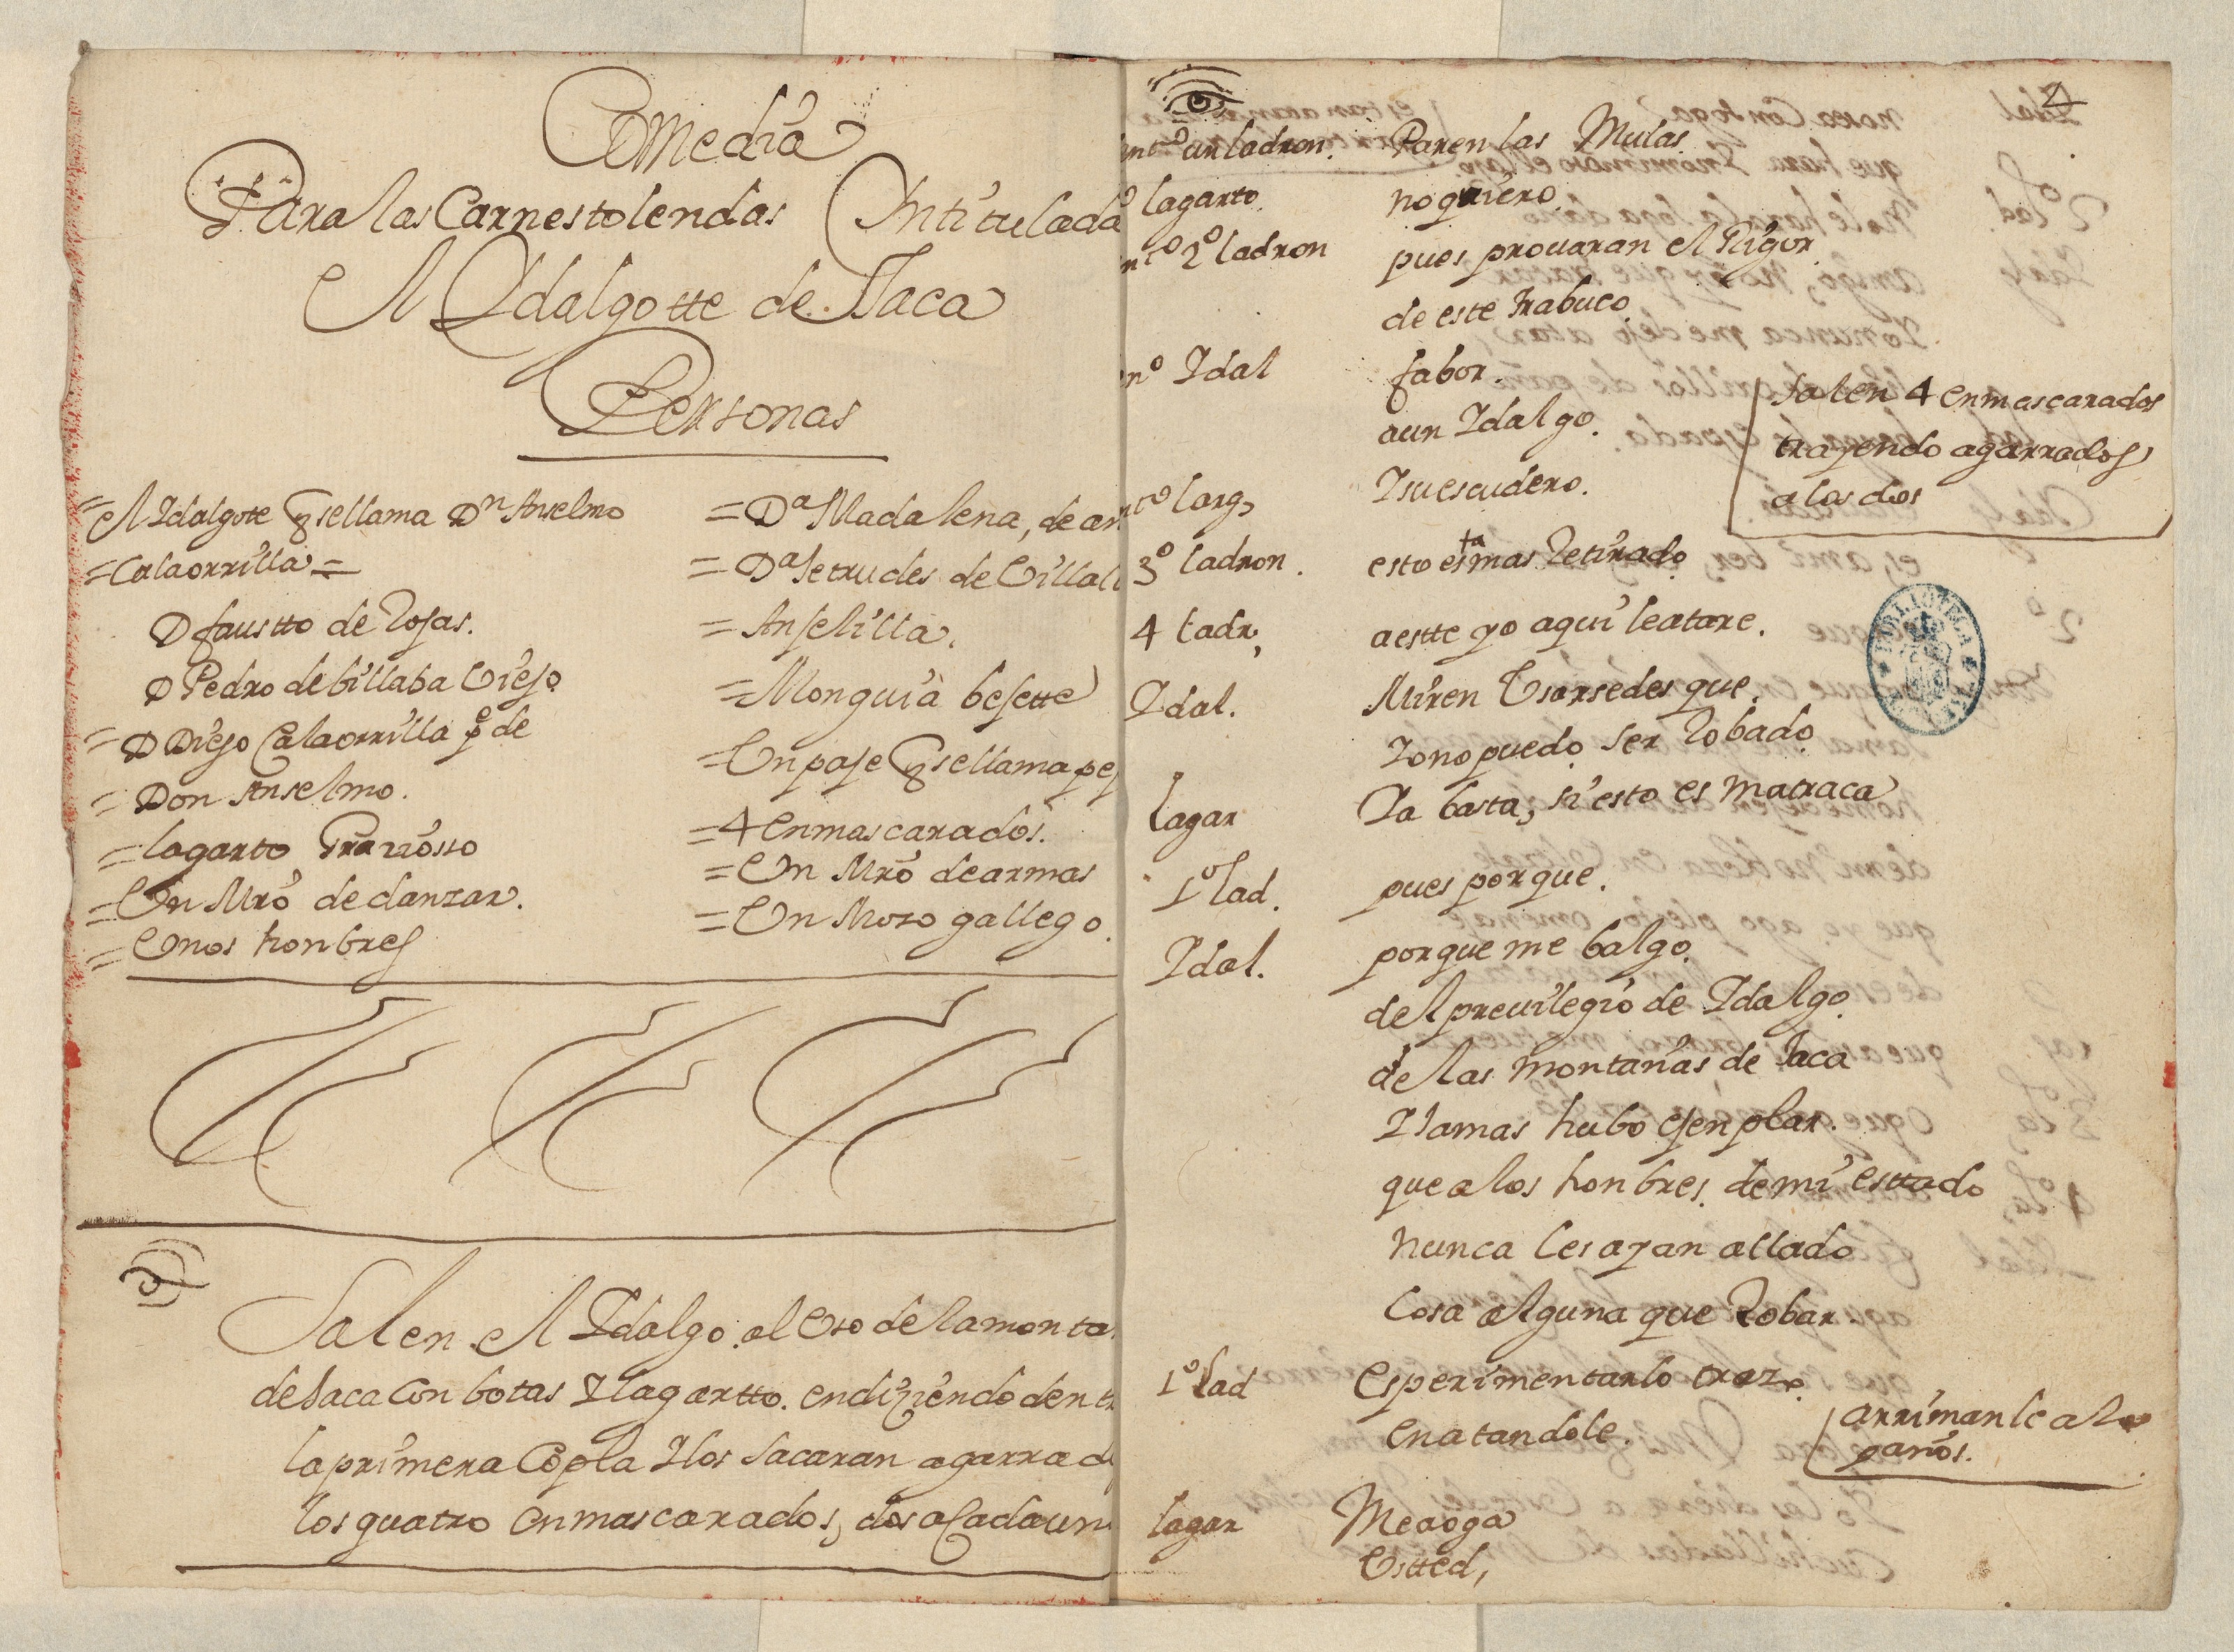 Comedia
Para las Carnestolendas Intitulada
El Idalgotte de Jaca
Personas
= El Idalgote q se llama Dn Anselmo
= Calaorrilla =
D faustto de Rojas.
D Pedro de billaba Viejo
= D Diejo Calaorrilla pe de
= Don Anselmo.
= lagarto Graziosso
= Un Mro de danzar.
= Unos honbres
= Da Madalena, de
= Da Jetrudes de
= Anjelilla.
= Monguia bejette
= Un paje q se llama
= 4 enmascarados.
= Un Mro de armas
= Un Mozo gallego.
Salen el Idalgo al Uso de la
de Jaca Con botas I lagartto. en diziendo
la primera Copla I los Sacaran
los quatro enmascarados, dos a Cada
2
un ladron. Paren las Mulas.
lagarto. no quiero.
2o ladron pues provaran el Rigor
de este trabuco.
Idal fabor.
a un Idalgo.
Salen 4 enmascarados
trayendo agarrados
a los dos
larg, I su escudero.
3o ladron. esto esta mas Retirado
4 ladr, a estte yo aqui le atare.
Idal. Miren Usarsedes que
Io no puedo ser Robado
lagar Ia basta, si esto es matraca
1o lad. pues porque.
Idal. porque me balgo.
del previlegio de Idalgo.
de las montañas de Jaca
I Jamas hubo ejenplar.
que a los honbres de mi esttado
nunca les ayan allado
Cosa alguna que Robar.
1o lad Esperimentarlo trazo
en atandole.
arrimanle al
paños.
lagar Me aoga
Ustted,